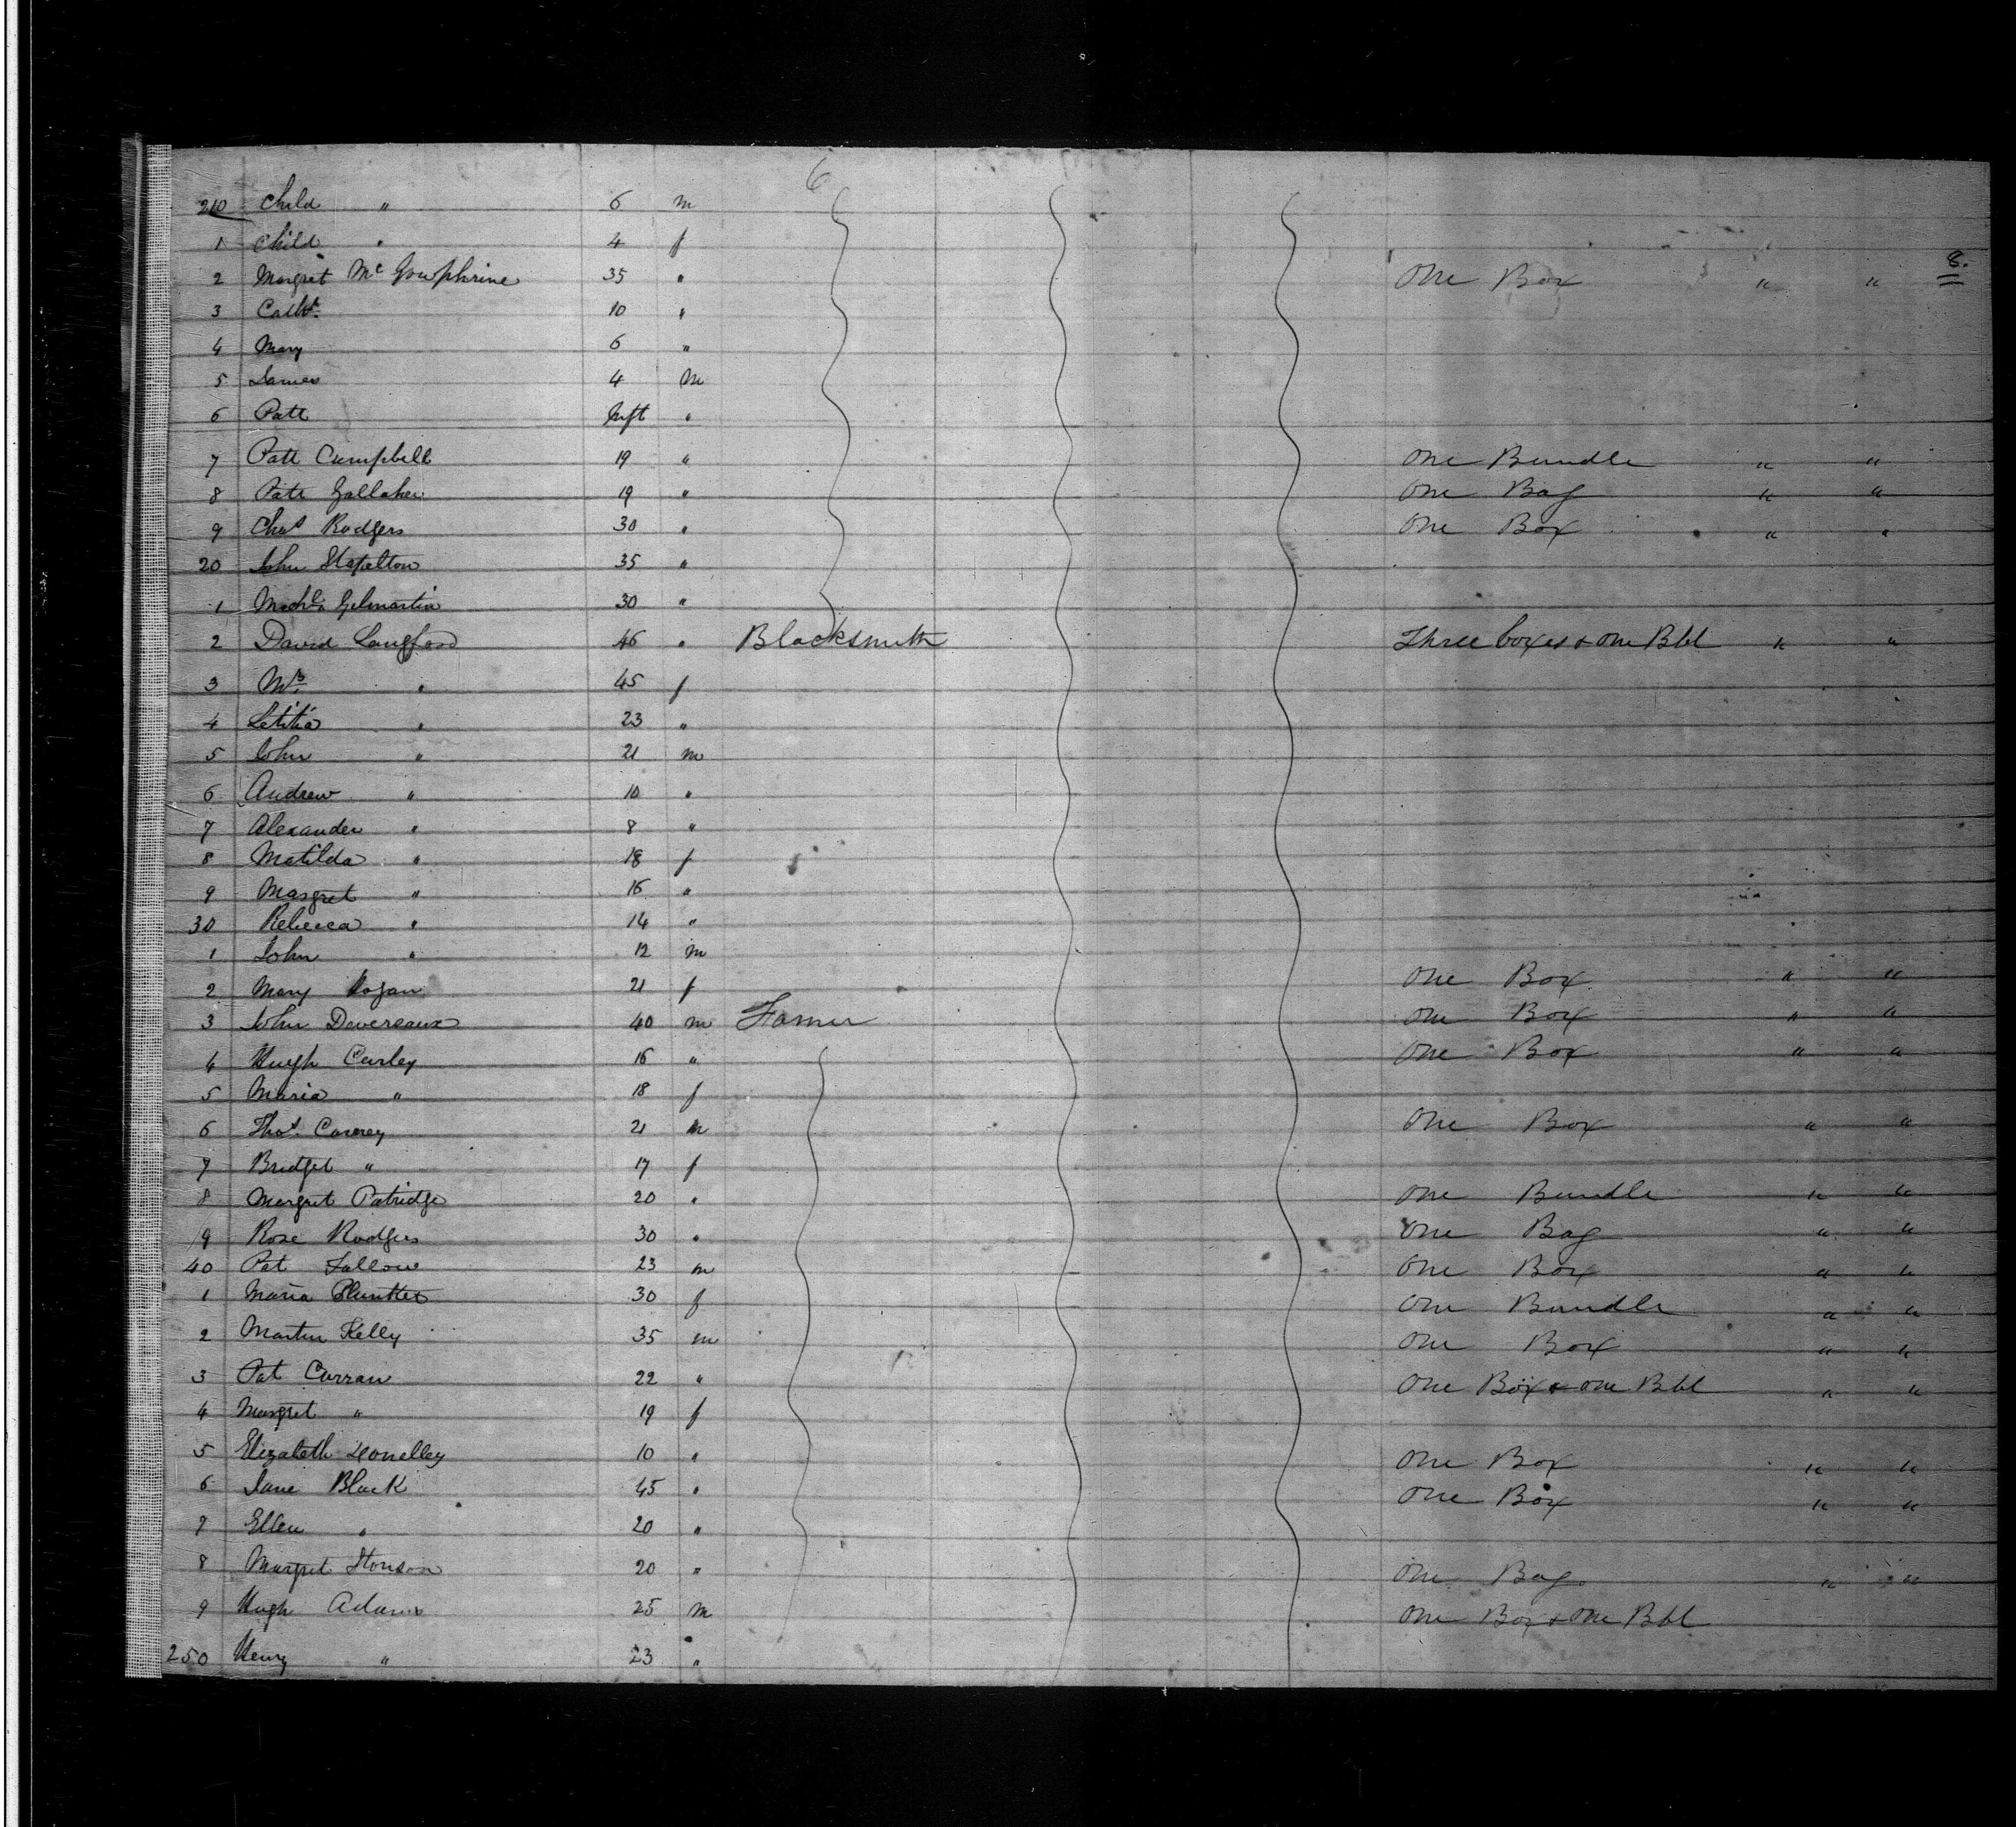 6
210 Child " 6 m
1 Child " 4 f
8.
2 Margret Mc Gowphrine 35 " One Box " "
3 Cath. 10 "
4 Mary 6 "
5 James 4 m
6 Patt Inft "
7 Patt Campbell 19 " One Bundle " "
8 Patt Gallaher 19 " One Bag " "
9 Chas Rodgers 30 " One Box " "
20 John Stapelton 35 "
1 Michl. Gilmartin 30 "
2 David Langford 46 " Blacksmith Three boxes & one Bbl " "
3 Mrs " 45 f
4 Letitia " 23 "
5 John " 21 m
6 Andrew " 10 "
7 Alexander " 8 "
8 Matilda " 18 f
9 Margret " 16 "
30 Rebecca " 14 "
1 John " 12 m
2 Mary Hogan 21 f One Box " "
3 John Devereaux 40 m Farmer One Box " "
4 Hugh Curley 16 " One Box " "
5 Maria " 18 f
6 Thos. 21 m One Box " "
7 Bridget " 17 f
8 Margret Patridge 20 " One Bundle " "
9 Rose Rodgers 30 " One Bag " "
40 Pat Fallow 23 m One Box " "
1 Maria Plunkket 30 f One Bundle " "
2 Martin Kelly 35 m One Box " "
3 Pat Curran 22 " One Box & one Bbl " "
4 Margret " 19 f
5 Elizabeth Donelley 10 " One Box " "
6 Jane Black 45 " One Box " "
7 Ellen " 20 "
8 Margret 20 " One Bag. " "
9 Hugh Adams 25 m One Box & One Bbl
250 Henry " 23 "